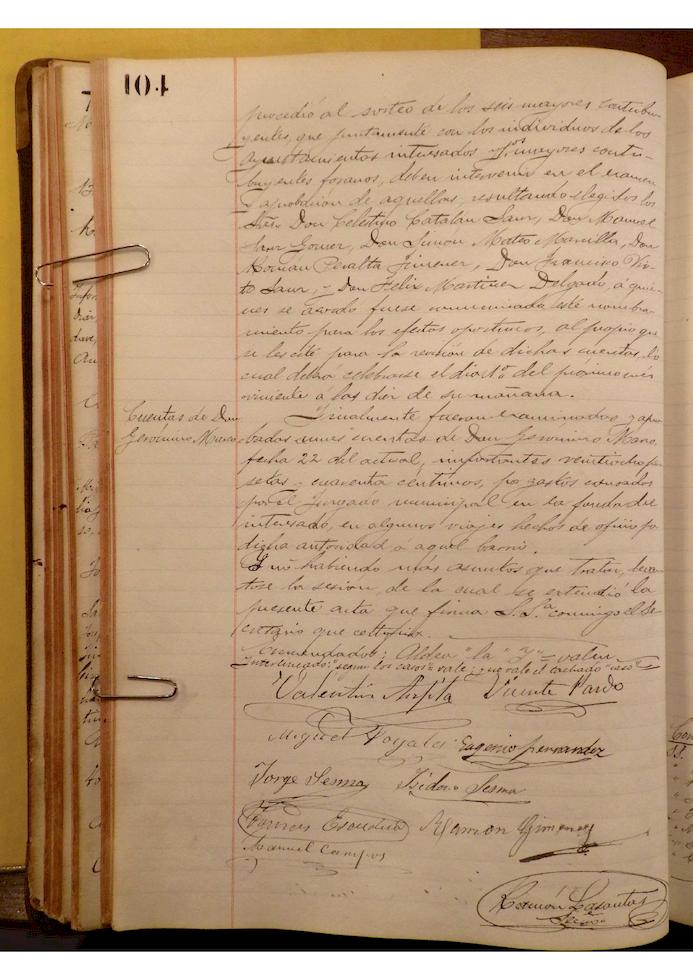 104
procedió al sorteo de los seis mayores contribu-
yentes, que juntamente con los individuos de los
ayuntamientos interesados y mayores contri-
buyentes foranos, deben intervenir en el examen
y aprobación de aquellas, resultando elegidos los
Sres. Don Celestino Catalan Saur, Don Manuel
Gomez, Don Simon Mateo Mansilla, Don
Román Peralta Jimenez, Don Francisco
Saur, y Don Felix Martinez Delgado, á quie-
nes se acordó fuese comunicada esté nombra-
miento para los efectos oportunos, al propio que
se les cité para la revisión de dichas cuentas, lo
cual deberá celebrarse el dia 1º del proximo mes
viniente á las diez de su mañana.
Cuentas de Don
Gerónimo
Finalmente fueron examinadas y apro-
badas unas cuentas de Don Geronimo
fecha 22 del actual, importantes veintiocho pe-
setas y cuarenta centimos, por gastos causados
por el Juzgado municipal en la fonda del
interesado, en algunos viajes hechos de oficio po
dicha autoridad á aquel barrio.
Y no habiendo más asuntos que tratar, levan-
tose la sesión, de la cual se extendió la
presente acta que firma S.Sª conmigo el Se-
cretario que certifico.
enmendados: Aldea "la" "Y" = valen
Interlineado: segun los casos = vale; = no vale el tachado
Valentin Vicente Pardo
Miguel Eugenio Fernandez
Jorge Sesma Isidoro Sesma
Escudero Ramon Gimenez
Manuel Campos
Ramón Lasantas